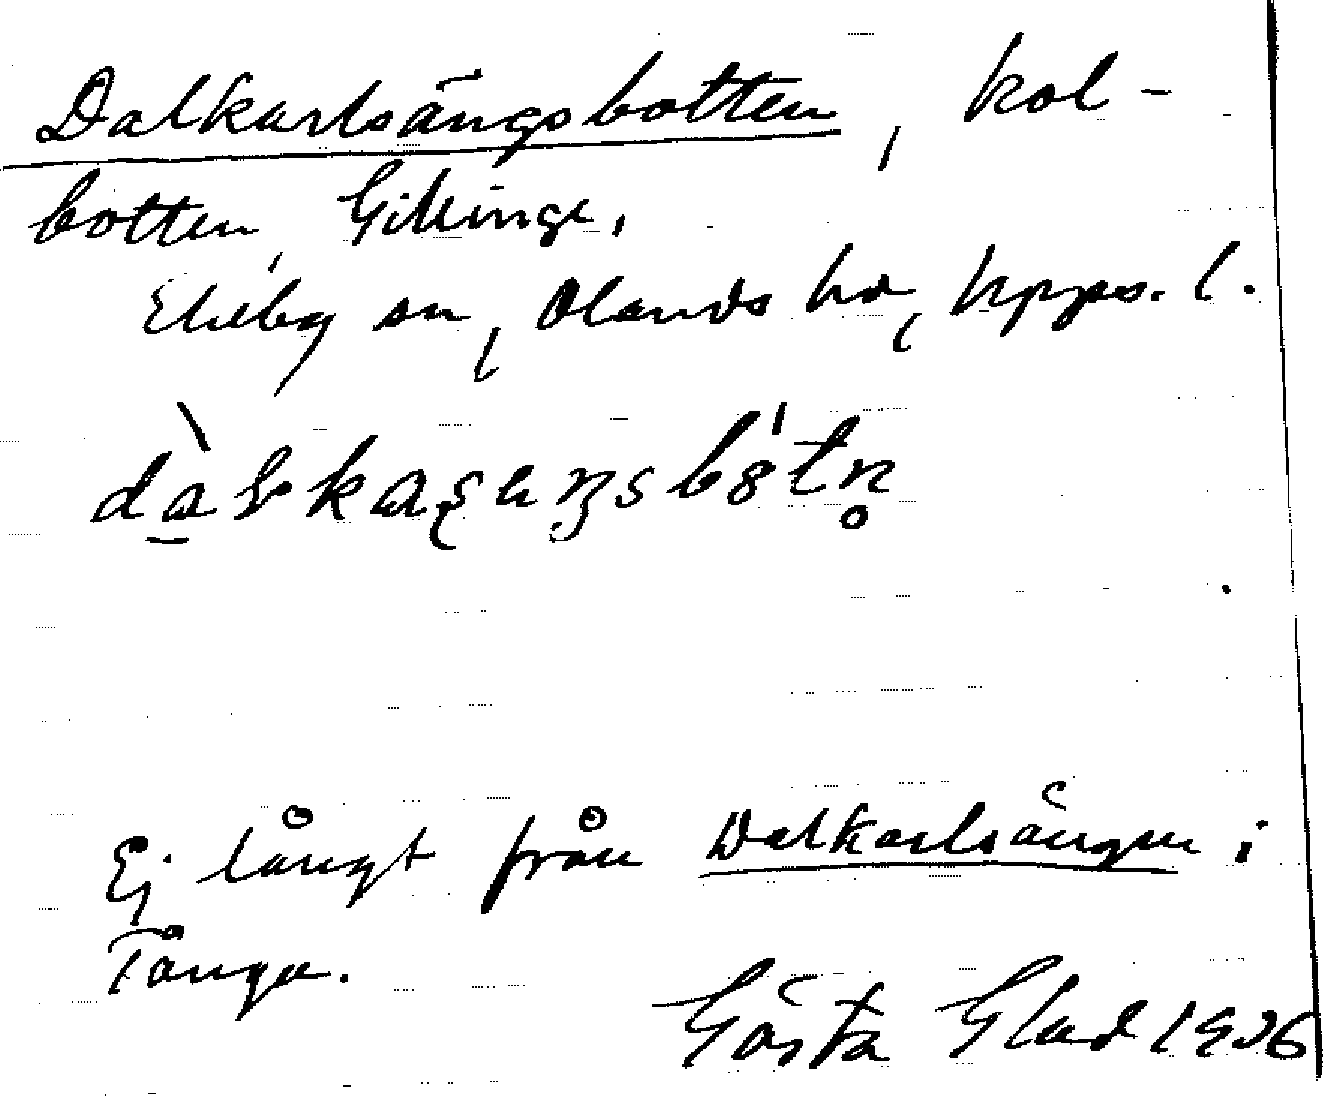 Dalkarlsängsbotten, kol-
botten, Gillinge,
Ekeby sn, Olands hd, Upps. l.
Ej långt från Dalkarlsängen i
Tånga.
Gösta Glad 1936